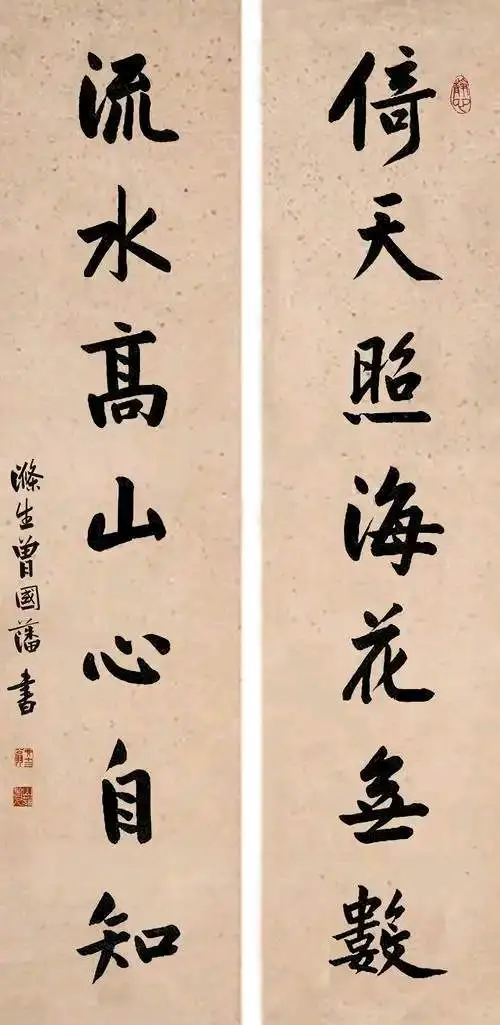 倚天照海花無數
流水高山心自知
滌生曾國藩書